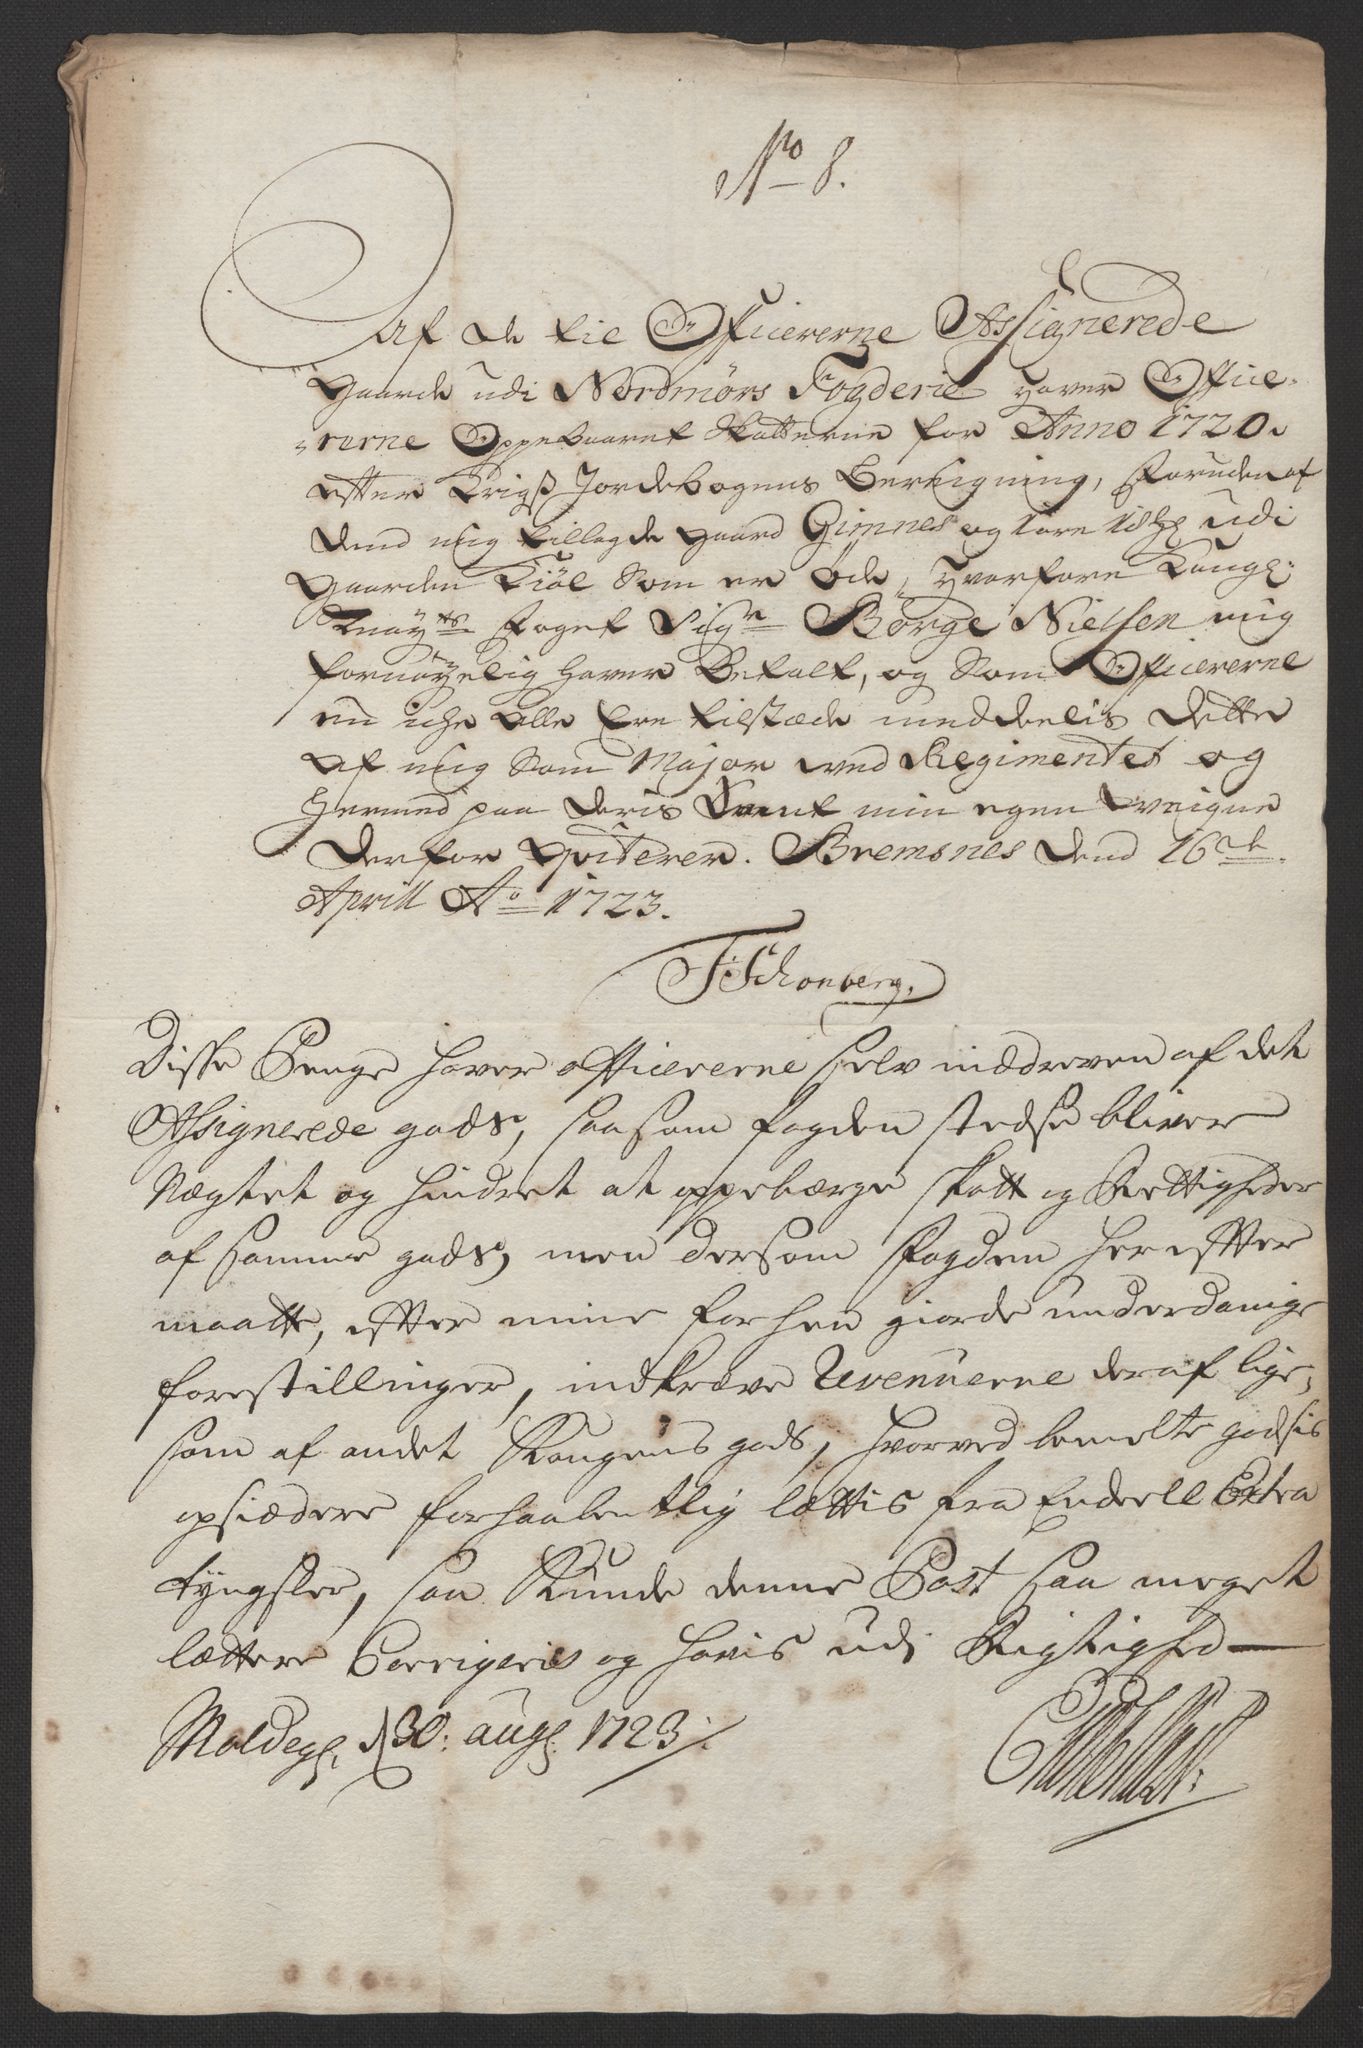 No 8.
Af de til Officererne Assignerede
gaarde udi Nordmørs Fogderie haver Office-
rerne Oppebaaret Skatterne for Anno 1720.
efter Krigs Jordebogens Beregning, foruden af
dend mig tillagde gaard Gimnes og 1 øre 18 udi
gaarden Tiøl som er øde, hvorfore Kongl:
Mayts foget Sigr Børge Nielsen mig
fornøyelig haver Betalt, og som Officererne
nu iche alle ere tilstæde meddeelis dette
af mig som Major ved Regimentet og
hermed paa deris samt min egen veigne
derfor qviterer. Bremsnes dend 16de
Aprill Ao 1723.
F Schonberg.
Disse Penge haver officererne selv inddreven af det
Assignerede gods, saasom fogden stedse bliver
Nægtet og hindret at oppebærge skatt og Rettigheder
af samme gods, men dersom Fogden her efter
maatte, efter mine forhen giorde underdanige
forestillinger, indkræve Revenuerne deraf lige-
som af andet Kongens gods, hvorved bemelte godsis
opsidere forhaabentlig lættis fra Endeell Extra
tyngsler, saa Kunde denne Post saa meget
lættere Corrigeris og havis udi Rigtighed
Moldegr. d 30: augr: 1723.